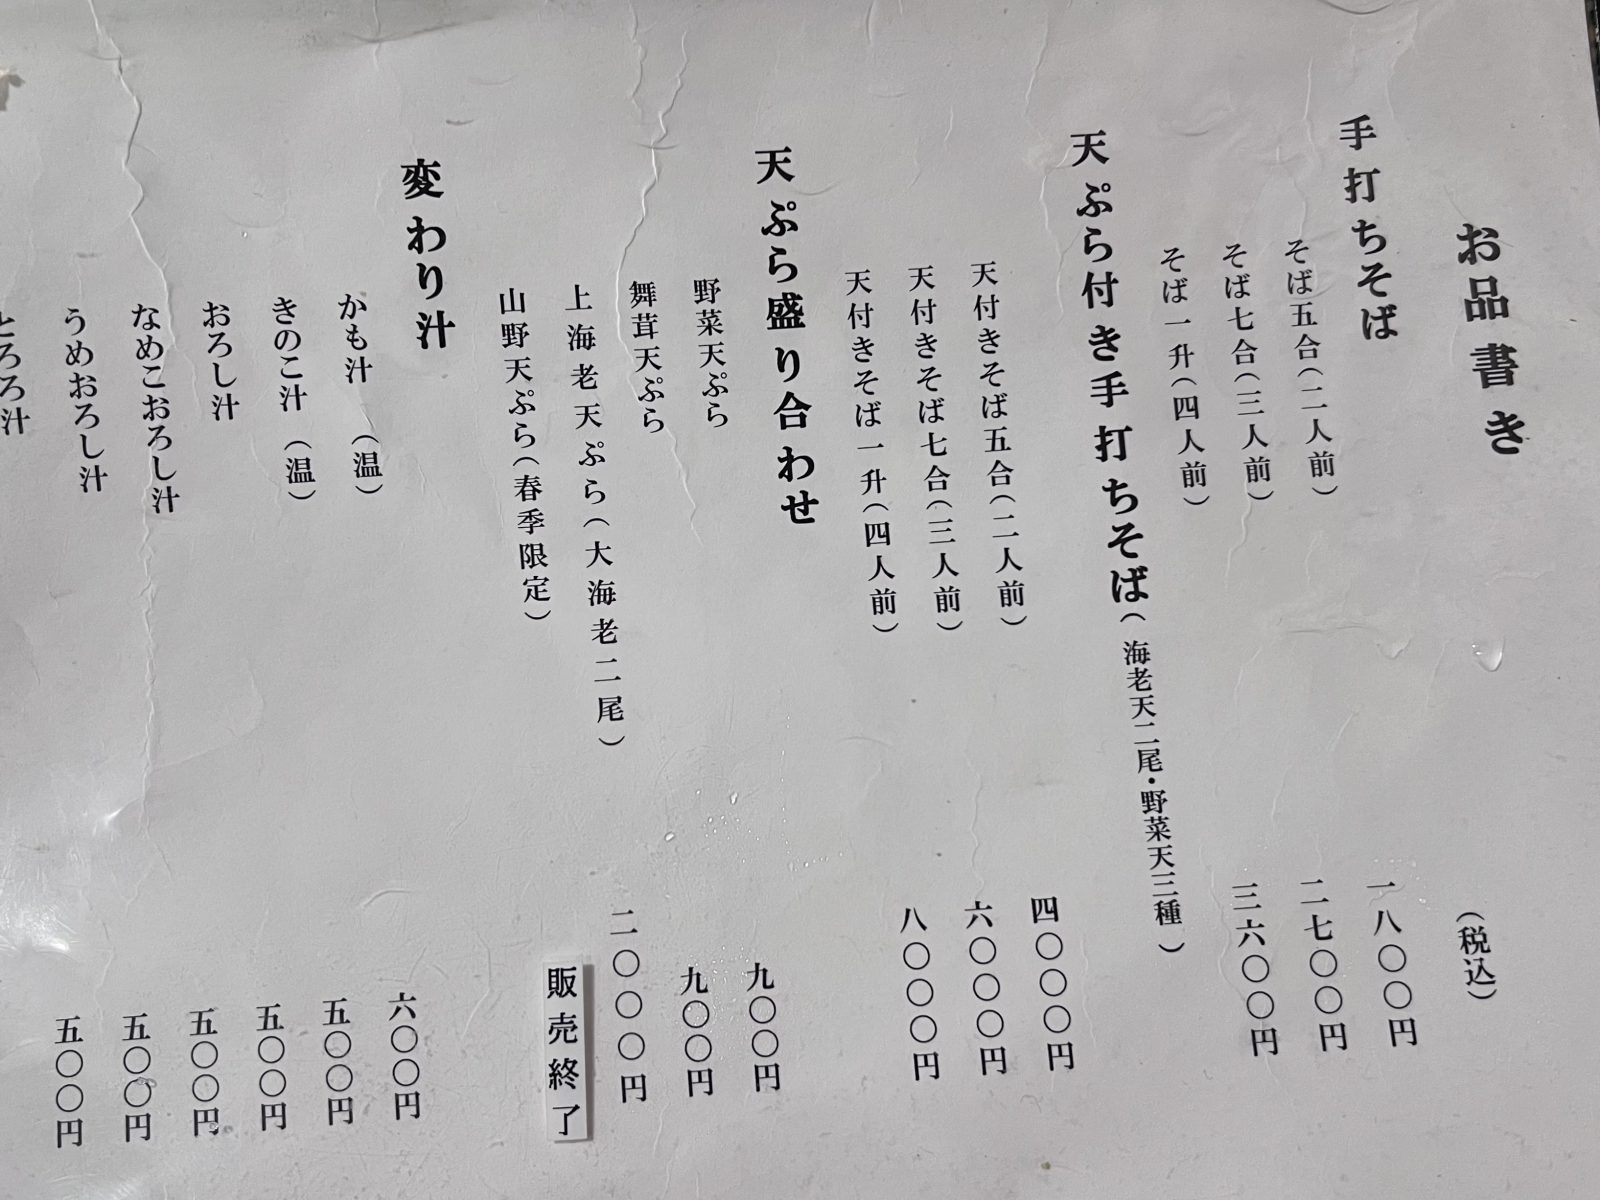 お品書き　（税込）
手打ちそば
そば五合（二人前）　一八〇〇円
そば七合（三人前）　二七〇〇円
そば一升（四人前）　三六〇〇円
天ぷら付き手打ちそば（海老天二尾・野菜天三種）
天付きそば五合（二人前）　四〇〇〇円
天付きそば七合（三人前）　六〇〇〇円
天付きそば一升（四人前）　八〇〇〇円
天ぷら盛り合わせ
野菜天ぷら　九〇〇円
舞茸天ぷら　九〇〇円
上海老天ぷら（大海老二尾）　二〇〇〇円
山野天ぷら（春季限定）　販売終了
変わり汁
かも汁　（温）　六〇〇円
きのこ汁　（温）　五〇〇円
おろし汁　五〇〇円
なめこおろし汁　五〇〇円
うめおろし汁　五〇〇円
とろろ汁　五〇〇円